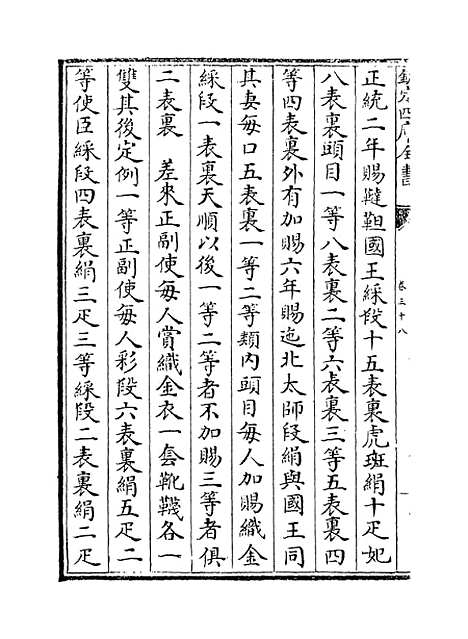 欽定四庫全書
卷三十八
正統二年賜韃靼國王綵段十五表裏虎斑絹十疋妃
八表裏頭目一等八表裏二等六表裏三等五表裏四
等四表裏外有加賜六年賜迤北太師段絹與國王同
其妻每口五表裏一等二等類內頭目每人加賜織金
綵段一表裏天順以後一等二等者不加賜三等者俱
二表裏 差來正副使每人賞織金衣一套靴韈各一
雙其後定例一等正副使每人彩段六表裏絹五疋二
等使臣綵段四表裏絹三疋三等綵段二表裏絹二疋